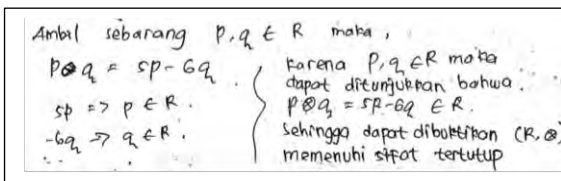 Ambil sebarang p,q ∈ R maka,
p⊗q = 5p - 6q
5p => p ∈ R.
-6q => q ∈ R.
karena p,q ∈ R maka
dapat ditunjukkan bahwa.
p⊗q = 5p - 6q ∈ R.
Sehingga dapat dibuktikan (R,⊗)
memenuhi sifat tertutup